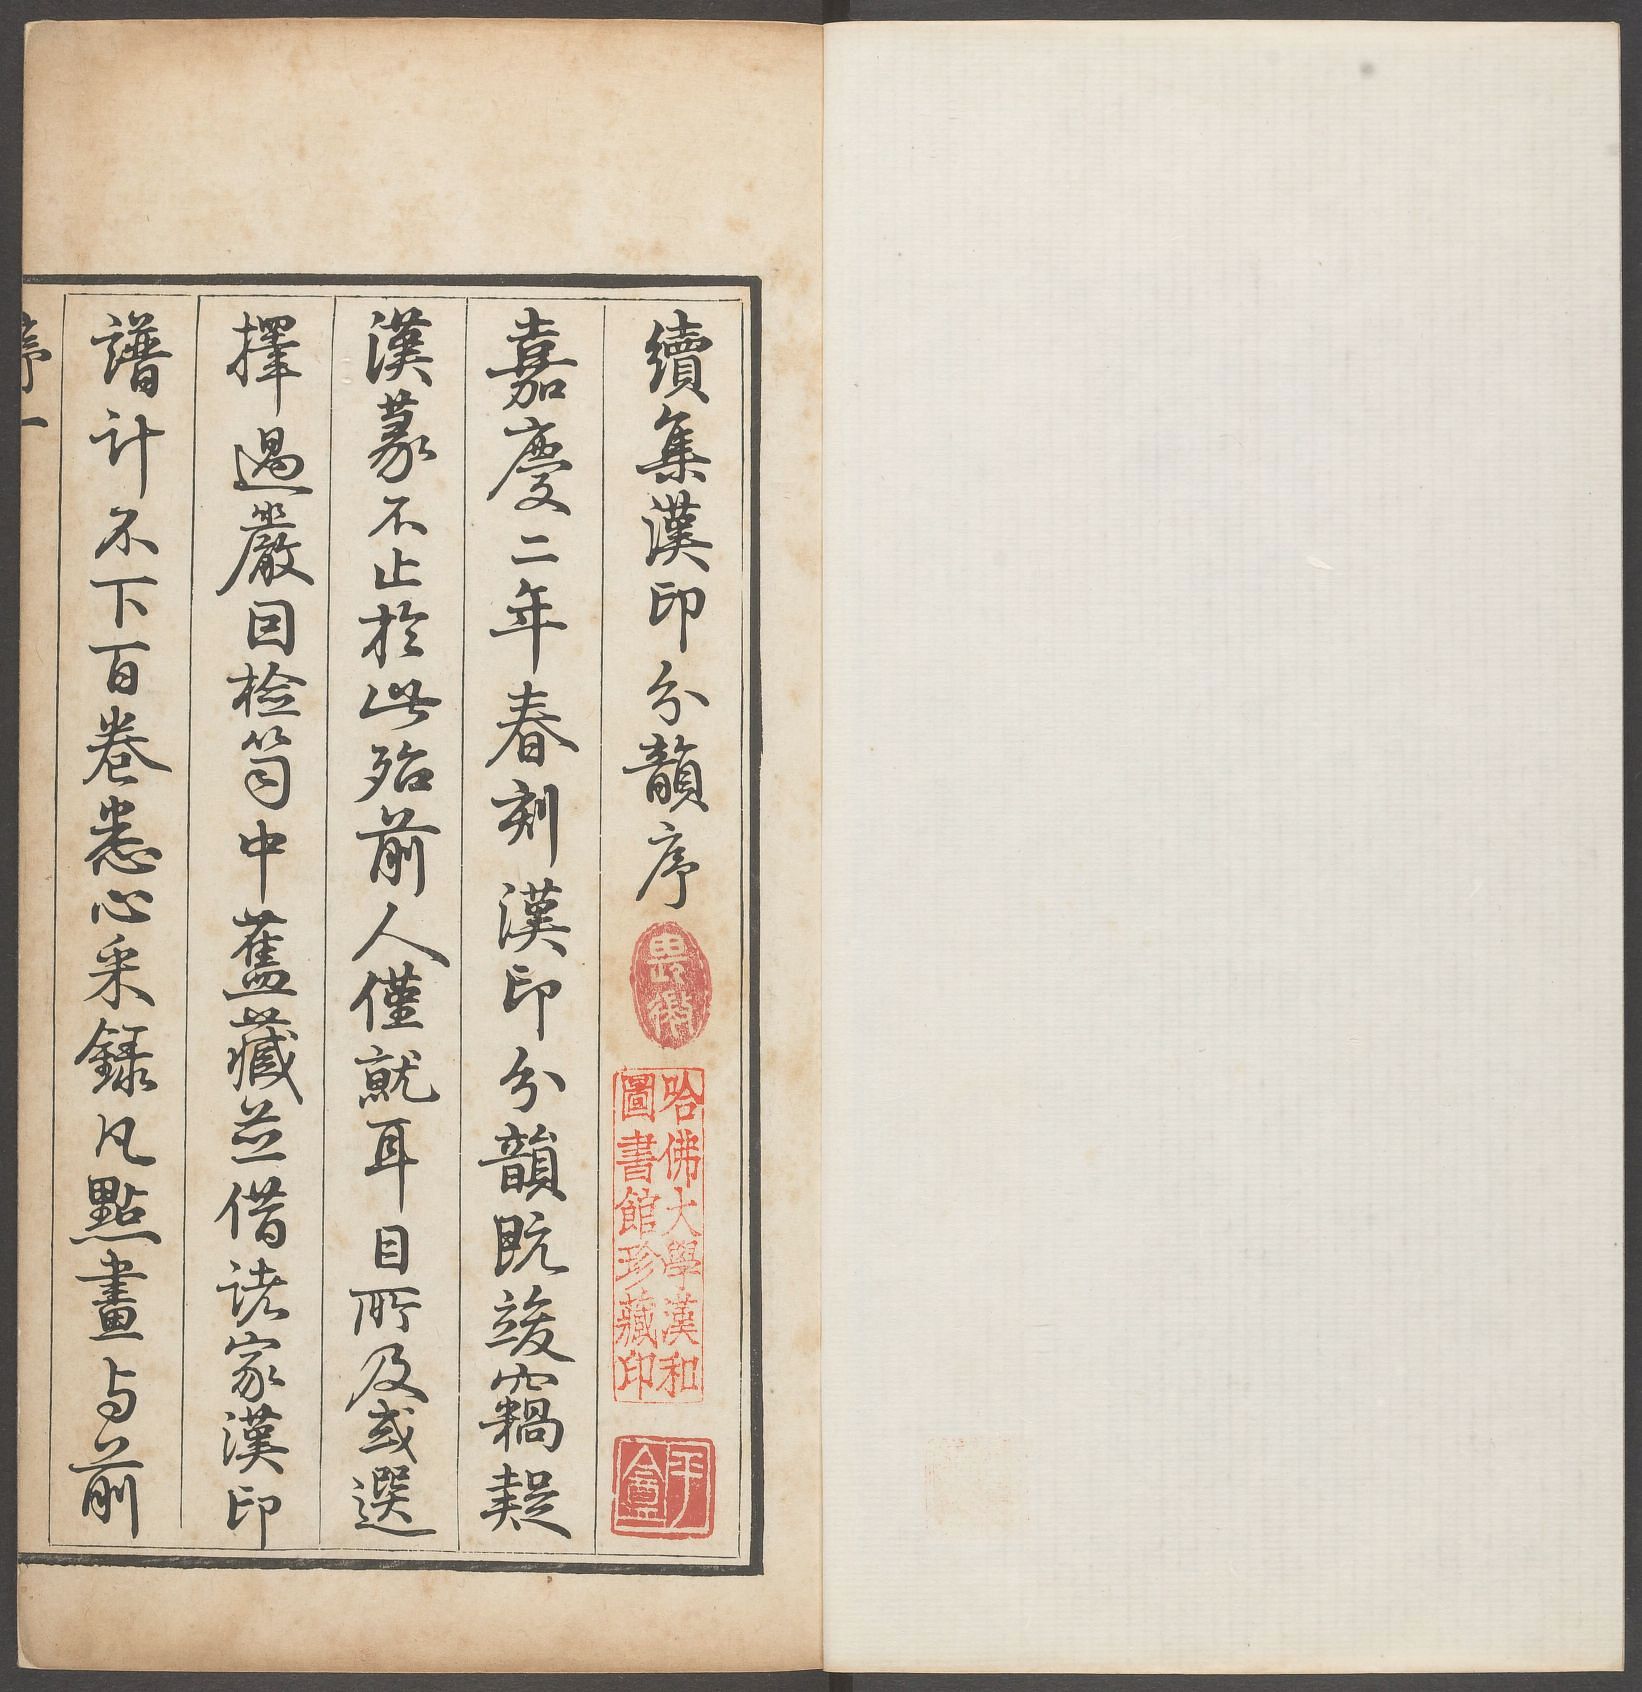 續集漢印分韻序
哈佛大學漢和
圖書館珍藏印
平盦
嘉慶二年春刻漢印分韻既竣竊疑
漢篆不止於此殆前人僅就耳目所及或選
擇過嚴因檢笥中舊藏並借諸家漢印
譜計不下百卷悉心采錄凡點畫与前
序一